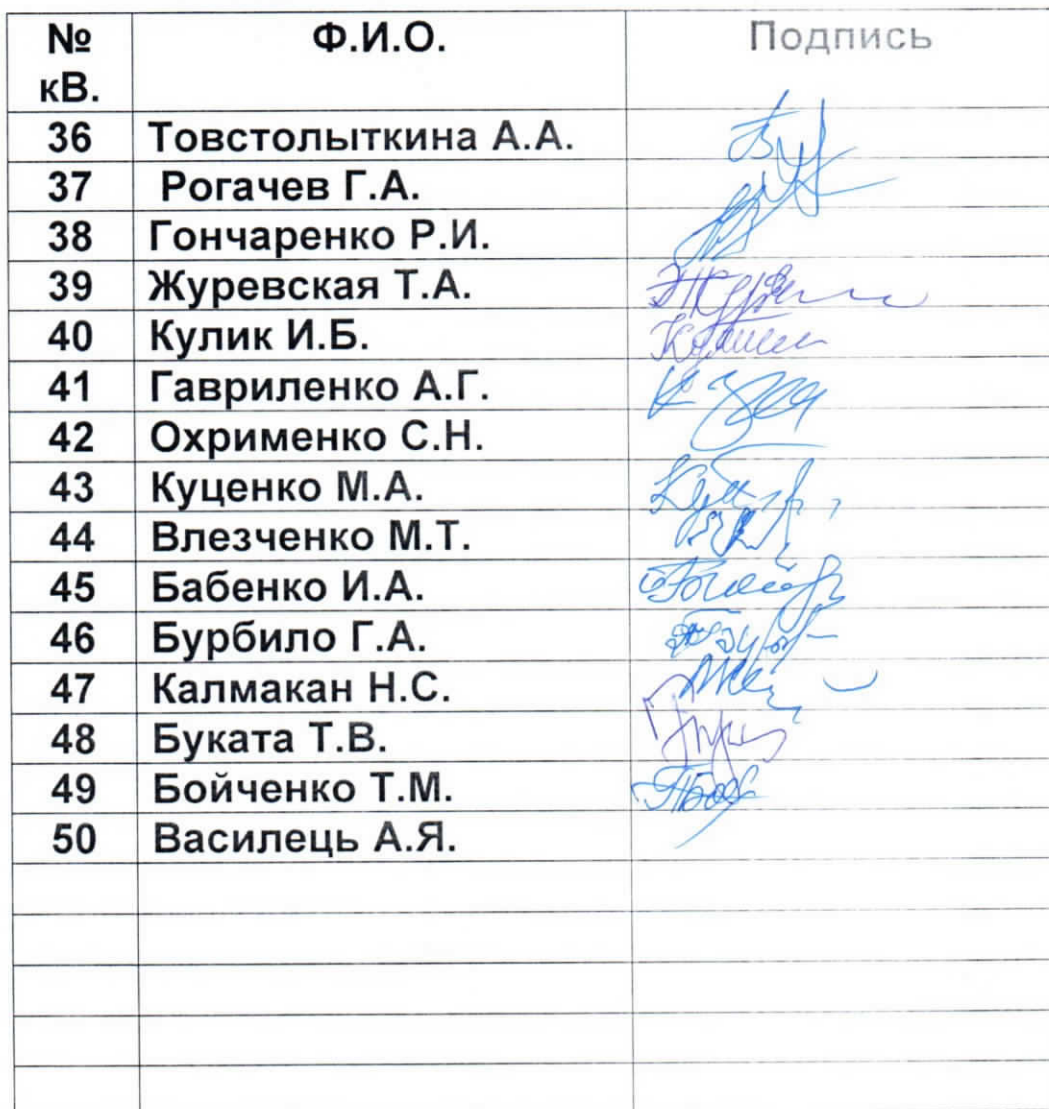 № Ф.И.О. Подпись
кВ.
36 Товстолыткина А.А.
37 Рогачев Г.А.
38 Гончаренко Р.И.
39 Журевская Т.А.
40 Кулик И.Б.
41 Гавриленко А.Г.
42 Охрименко С.Н.
43 Куценко М.А.
44 Влезченко М.Т.
45 Бабенко И.А.
46 Бурбило Г.А.
47 Калмакан Н.С.
48 Буката Т.В.
49 Бойченко Т.М.
50 Василець А.Я.